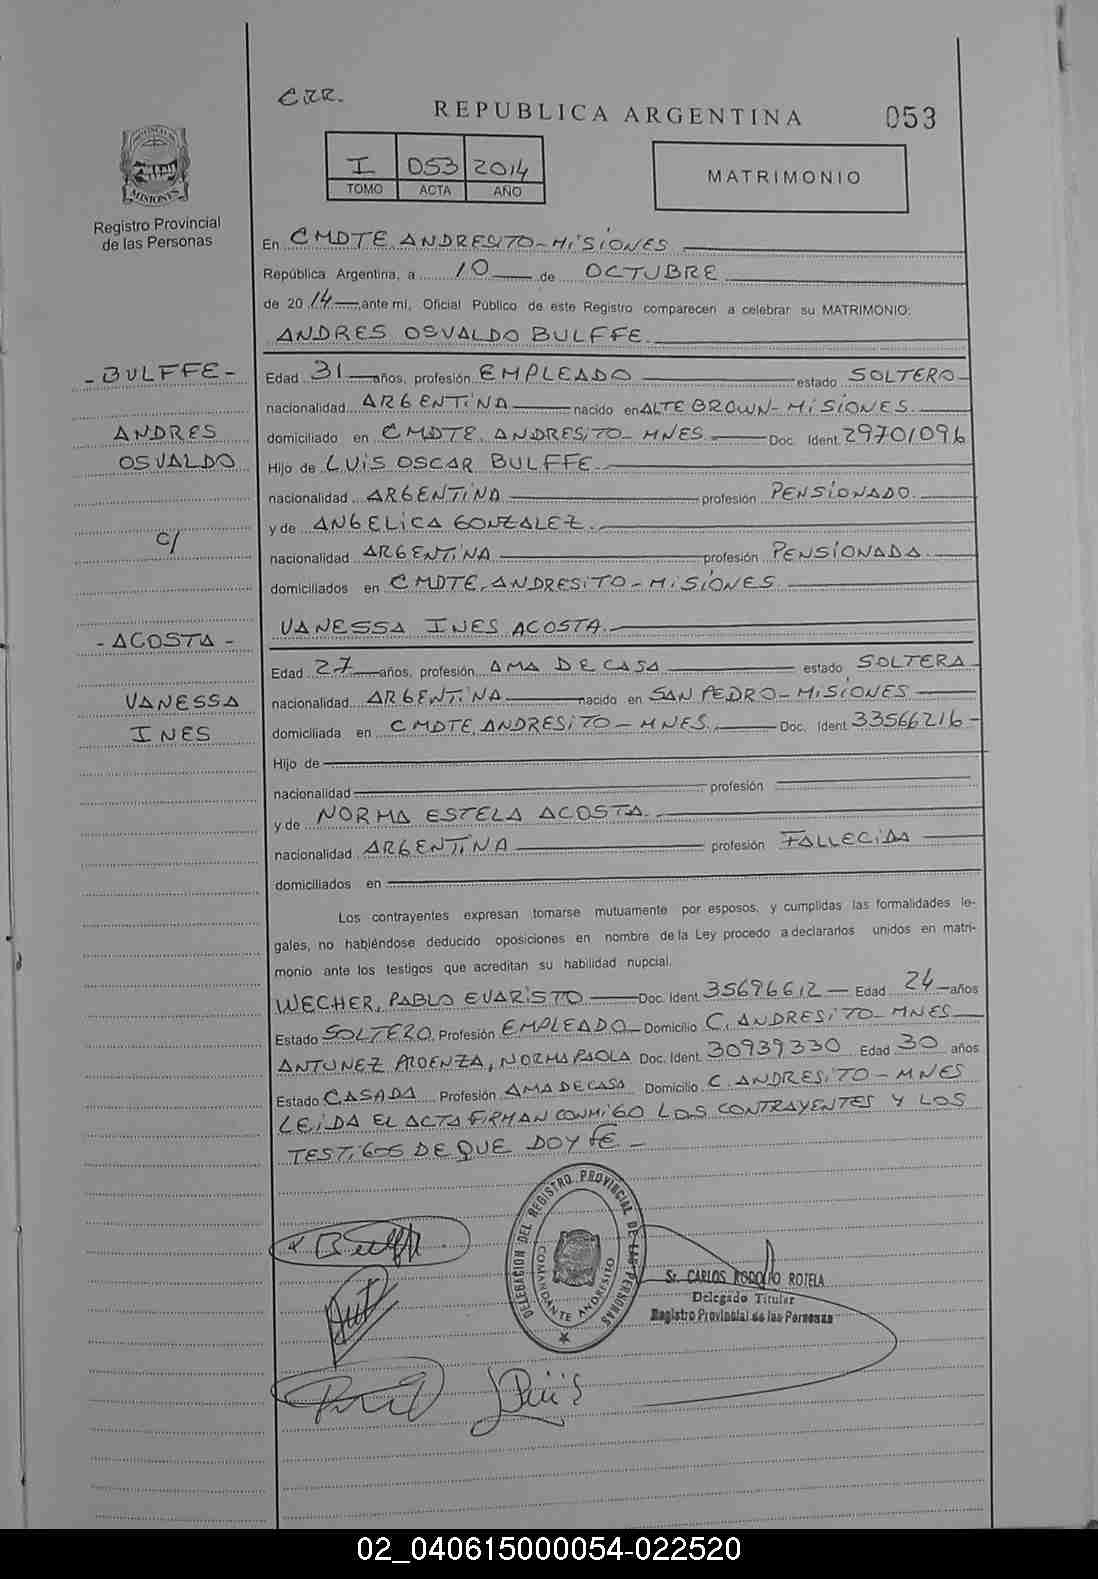 CRR.
REPUBLICA ARGENTINA
053
I 053 2014
TOMO ACTA AÑO
MATRIMONIO
PROVINCIA DE
MISIONES
Registro Provincial
de las Personas
En CMDTE ANDRESITO-MISIONES
República Argentina, a 10 de OCTUBRE
de 2014, ante mi, Oficial Público de este Registro comparecen a celebrar su MATRIMONIO:
ANDRES OSVALDO BULFFE.
- BULFFE -
ANDRES
OSVALDO
c/
- ACOSTA -
VANESSA
INES
Edad 31 años, profesión EMPLEADO estado SOLTERO-
nacionalidad ARGENTINA nacido en ALTE BROWN-MISIONES.
domiciliado en CMDTE. ANDRESITO-MNES. Doc. Ident. 29701096
Hijo de LUIS OSCAR BULFFE.
nacionalidad ARGENTINA profesión PENSIONADO.
y de ANGELICA GONZALEZ.
nacionalidad ARGENTINA profesión PENSIONADA.
domiciliados en CMDTE. ANDRESITO-MISIONES.
VANESSA INES ACOSTA.
Edad 27 años, profesión AMA DE CASA estado SOLTERA
nacionalidad ARGENTINA nacido en SAN PEDRO-MISIONES
domiciliada en CMDTE. ANDRESITO-MNES. Doc. Ident. 33566216-
Hijo de
nacionalidad profesión
y de NORMA ESTELA ACOSTA.
nacionalidad ARGENTINA profesión FALLECIDA
domiciliados en
Los contrayentes expresan tomarse mutuamente por esposos, y cumplidas las formalidades le-
gales, no habiéndose deducido oposiciones en nombre de la Ley procedo a declararlos unidos en matri-
monio ante los testigos que acreditan su habilidad nupcial.
WECHER, PABLO EVARISTO Doc. Ident. 35696612 - Edad 24 años
Estado SOLTERO. Profesión EMPLEADO Domicilio C. ANDRESITO-MNES
ANTUNEZ PROENZA, NORMA PAOLA Doc. Ident. 30939330 Edad 30 años
Estado CASADA Profesión AMA DE CASA Domicilio C. ANDRESITO-MNES
LEIDA EL ACTA FIRMAN CONMIGO LOS CONTRAYENTES Y LOS
TESTIGOS DE QUE DOY FE-
DELEGACION DEL REGISTRO PROVINCIAL DE LAS PERSONAS
COMANDANTE ANDRESITO
Sr. CARLOS RODOLFO ROTELA
Delegado Titular
Registro Provincial de las Personas
02_040615000054-022520